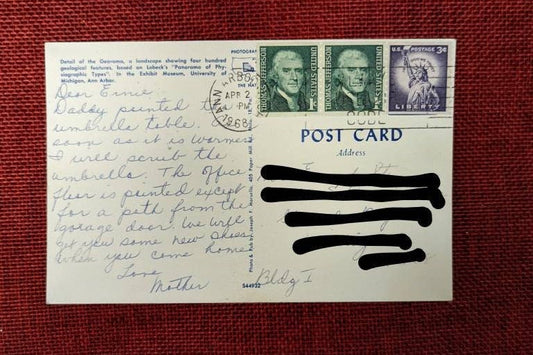 Detail of the Georama, a landscape showing four hundred
geological features, based on Lobeck's "Panorama of Phy-
siographic Types". In the Exhibit Museum, University of
Michigan, Ann Arbor.
Dear Ernie
Daddy painted the
umbrella table.
soon as it is warmer
I will scrub the
umbrella. The office
floor is painted except
for a path from the
garage door. We will
get you some new shoes
when you come home
Love
Mother
PHOTOGRAP
ANN ARBOR
APR 2
PM
1968
THOMAS JEFFERSON
1c
UNITED STATES
THOMAS JEFFERSON
UNITED STATES
U.S. POSTAGE 3¢
LIBERTY
CODE
POST CARD
Address
Bldg I
S44932